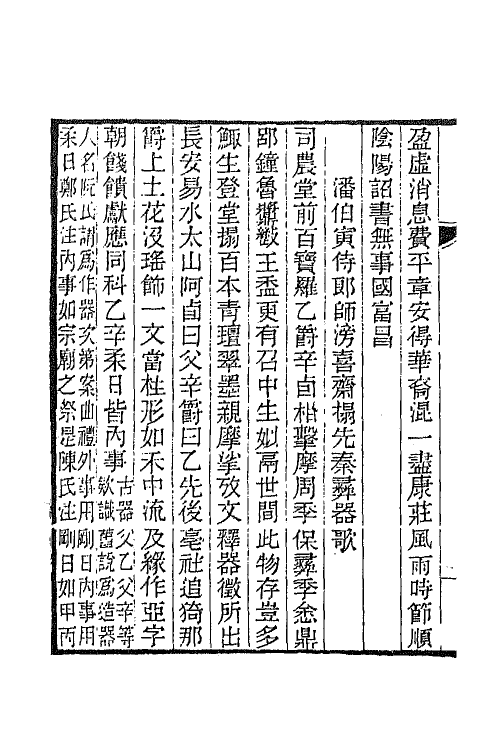 盈虛消息費平章安得華裔混一盡康莊風雨時節順
陰陽詔書無事國富昌
潘伯寅侍郎師滂喜齋搨先秦彝器歌
司農堂前百寶羅乙爵辛卣相擊摩周季保彝季悆鼎
郘鐘魯王盉更有召中生妣鬲世間此物存豈多
鯫生登堂搨百本青氊翠墨親摩挲攷文釋器徵所出
長安易水太山阿卣曰父辛爵曰乙先後亳社追猗那
爵上土花沒瑤飾一文當柱形如禾中流及緣作亞字
朝餞饋獻應同科乙辛柔日皆內事古器父乙父辛等
欵識舊說爲造器
人名阮氏謂爲作器次第案曲禮外事用剛日內事用
柔日鄭氏注內事如宗廟之祭是陳氏注剛日如甲丙